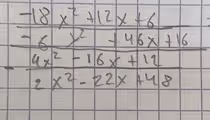 -18x² + 12x + 6
-6x² + 46x + 16
- 4x² - 16x + 12
2x² - 22x + 48